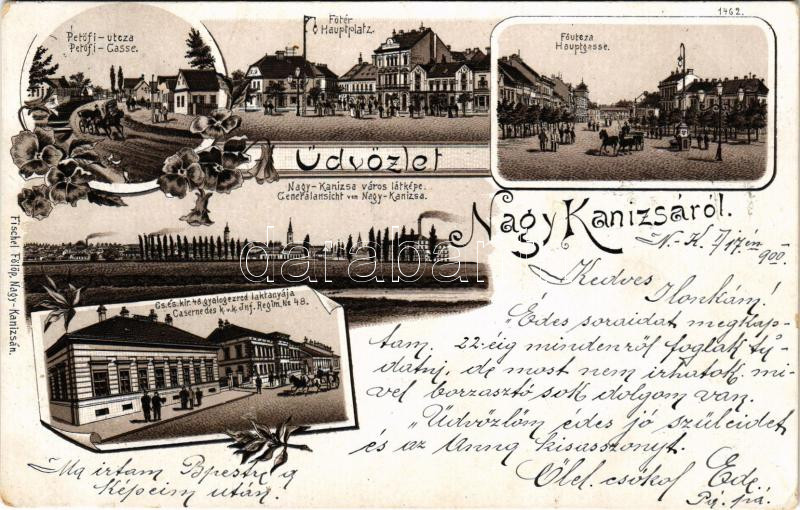 1462.
Petőfi-utcza
Petőfi-Gasse.
Főtér
Hauptplatz.
Főutcza
Hauptgasse.
Üdvözlet
Nagy-Kanizsa város látképe.
Generalansicht von Nagy-Kanizsa.
Nagy Kanizsáról.
darabanth
Cs. és. kir. 48. gyalogezred laktanyája
Caserne des k. u. k. Inf. Regim. № 48.
Fischel Fülöp, Nagy-Kanizsán.
N.-K. 7/17-én
900.
Kedves
Ilonkám!
Édes soraidat megkap-
tam. 22-éig mindenről foglak tu-
datni, de most nem irhatok mi-
vel borzasztó sok dolgom van.
Üdvözlöm édes jó szüleidet
és az Anna kisasszonyt.
Ölel. csókol Ede
Pá. pá.
Ma irtam Bpestre a
képeim után.